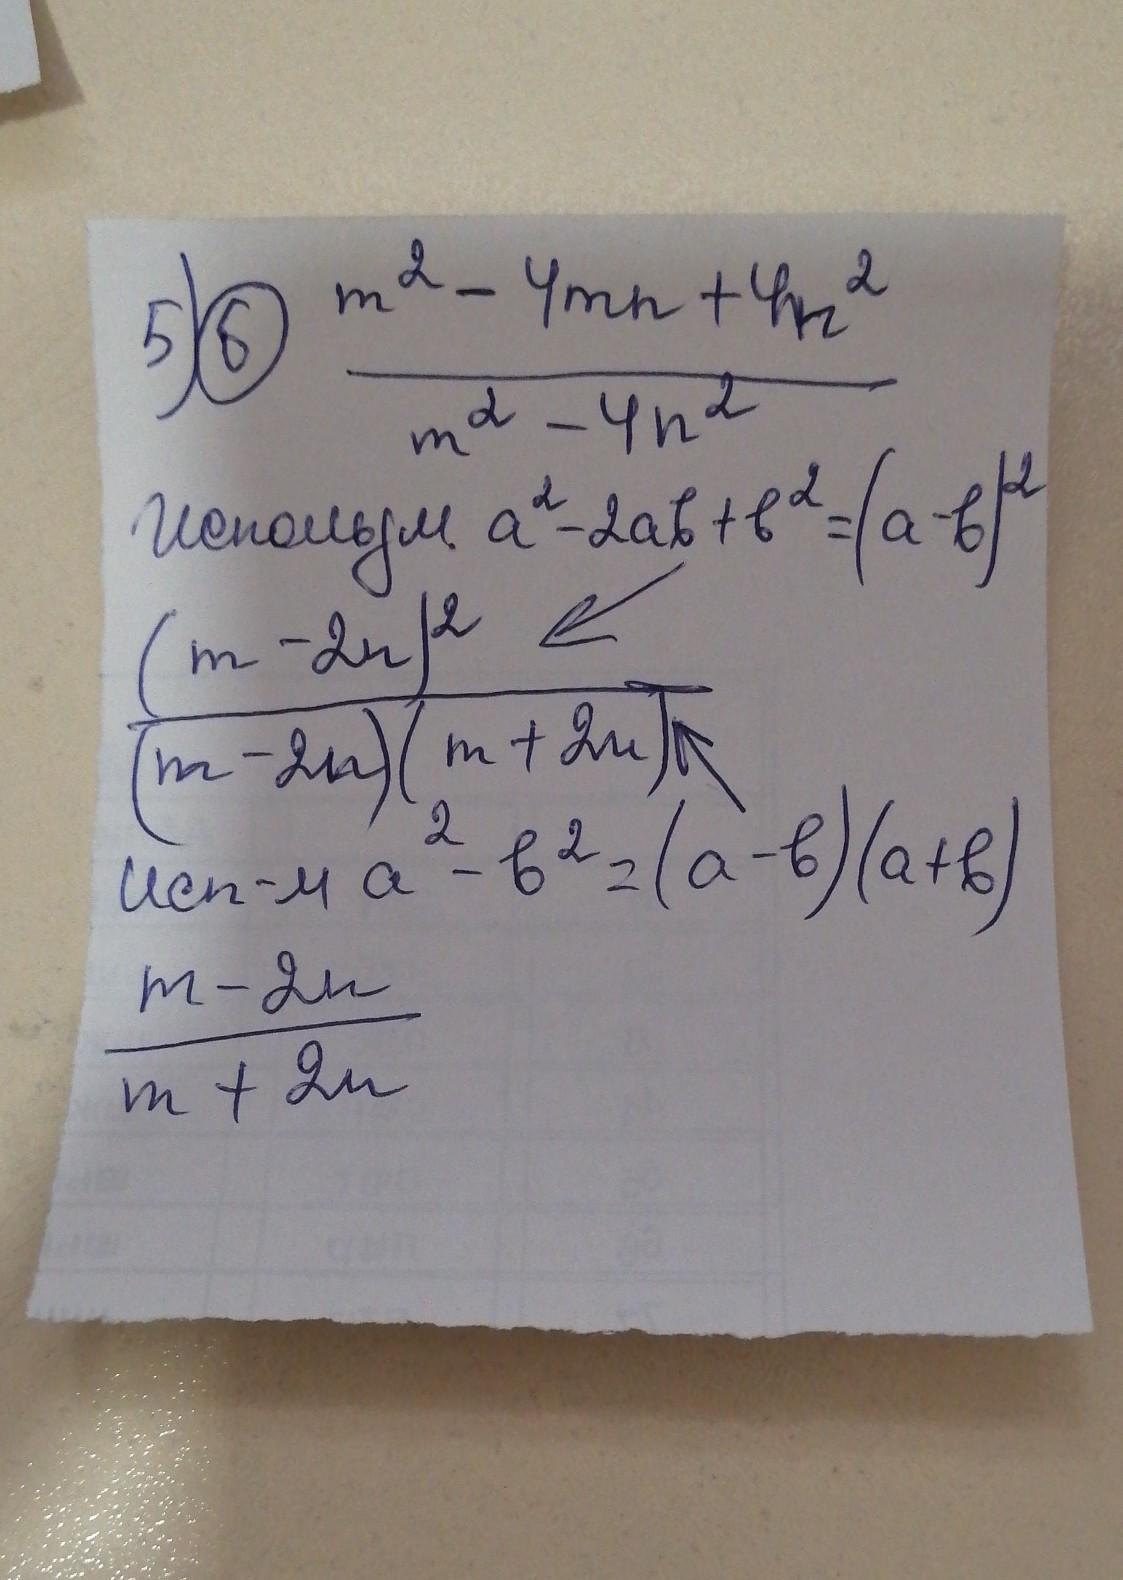 5) б m² - 4mn + 4n²
m² - 4n²
Использ. a² - 2ab + b² = (a - b)²
(m - 2n)²
(m - 2n)(m + 2n)
Исп-м a² - b² = (a - b)(a + b)
m - 2n
m + 2n